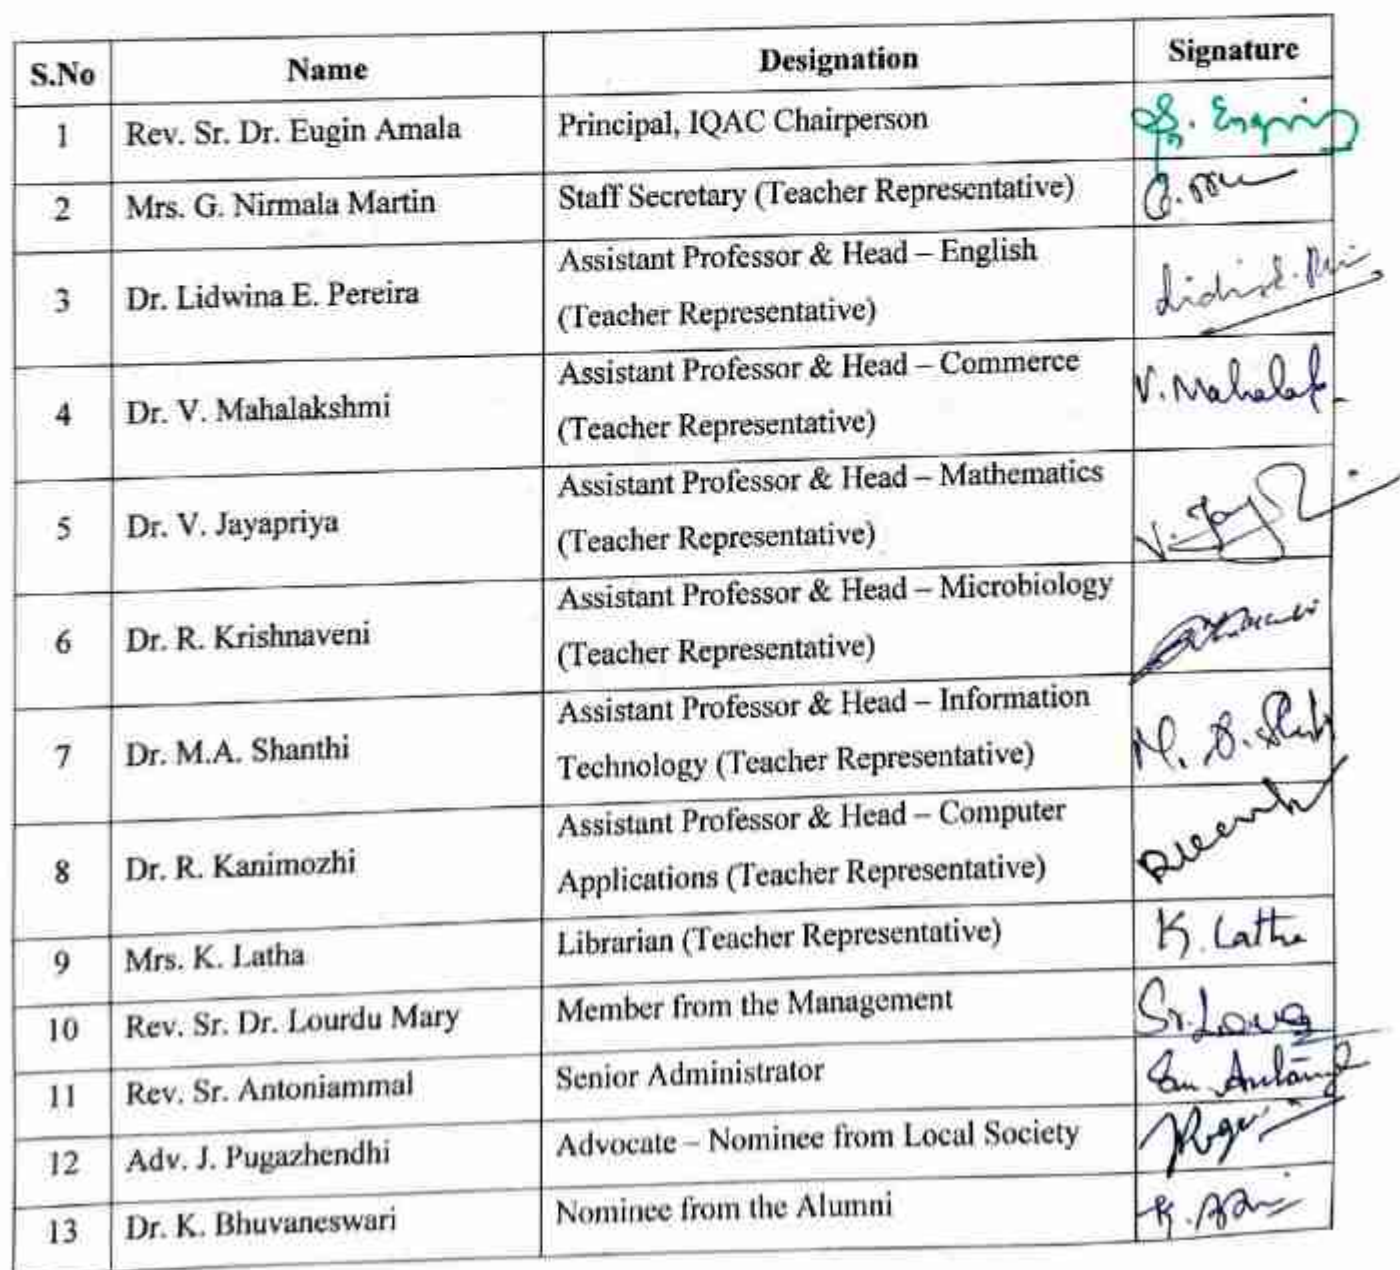 S.No Name Designation Signature
1 Rev. Sr. Dr. Eugin Amala Principal, IQAC Chairperson
2 Mrs. G. Nirmala Martin Staff Secretary (Teacher Representative)
3 Dr. Lidwina E. Pereira Assistant Professor & Head – English
(Teacher Representative)
4 Dr. V. Mahalakshmi Assistant Professor & Head – Commerce V. Mahalak
(Teacher Representative)
5 Dr. V. Jayapriya Assistant Professor & Head – Mathematics
(Teacher Representative)
6 Dr. R. Krishnaveni Assistant Professor & Head – Microbiology
(Teacher Representative)
7 Dr. M.A. Shanthi Assistant Professor & Head – Information
Technology (Teacher Representative)
8 Dr. R. Kanimozhi Assistant Professor & Head – Computer
Applications (Teacher Representative)
9 Mrs. K. Latha Librarian (Teacher Representative) K. Latha
10 Rev. Sr. Dr. Lourdu Mary Member from the Management
11 Rev. Sr. Antoniammal Senior Administrator
12 Adv. J. Pugazhendhi Advocate – Nominee from Local Society
13 Dr. K. Bhuvaneswari Nominee from the Alumni